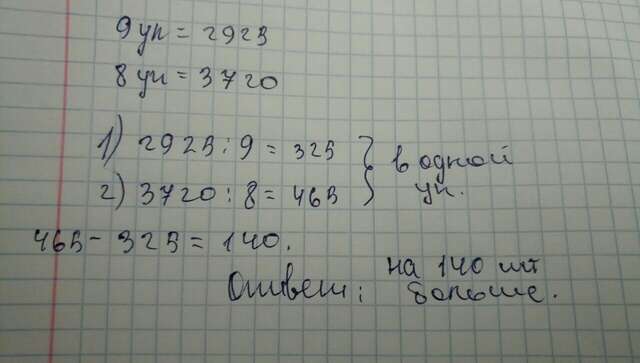 9 уп = 2925
8 уп = 3720
1) 2925 : 9 = 325 } в одной
2) 3720 : 8 = 465 } уп.
465 - 325 = 140.
Ответ: на 140 шт
больше.